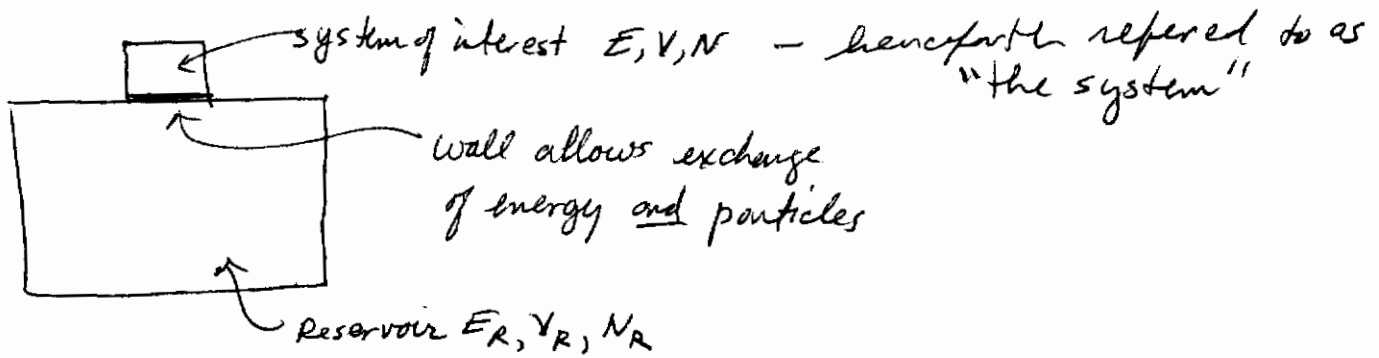 system of interest E, V, N — henceforth refered to as
"the system"
wall allows exchange
of energy and particles
Reservoir E_R, V_R, N_R